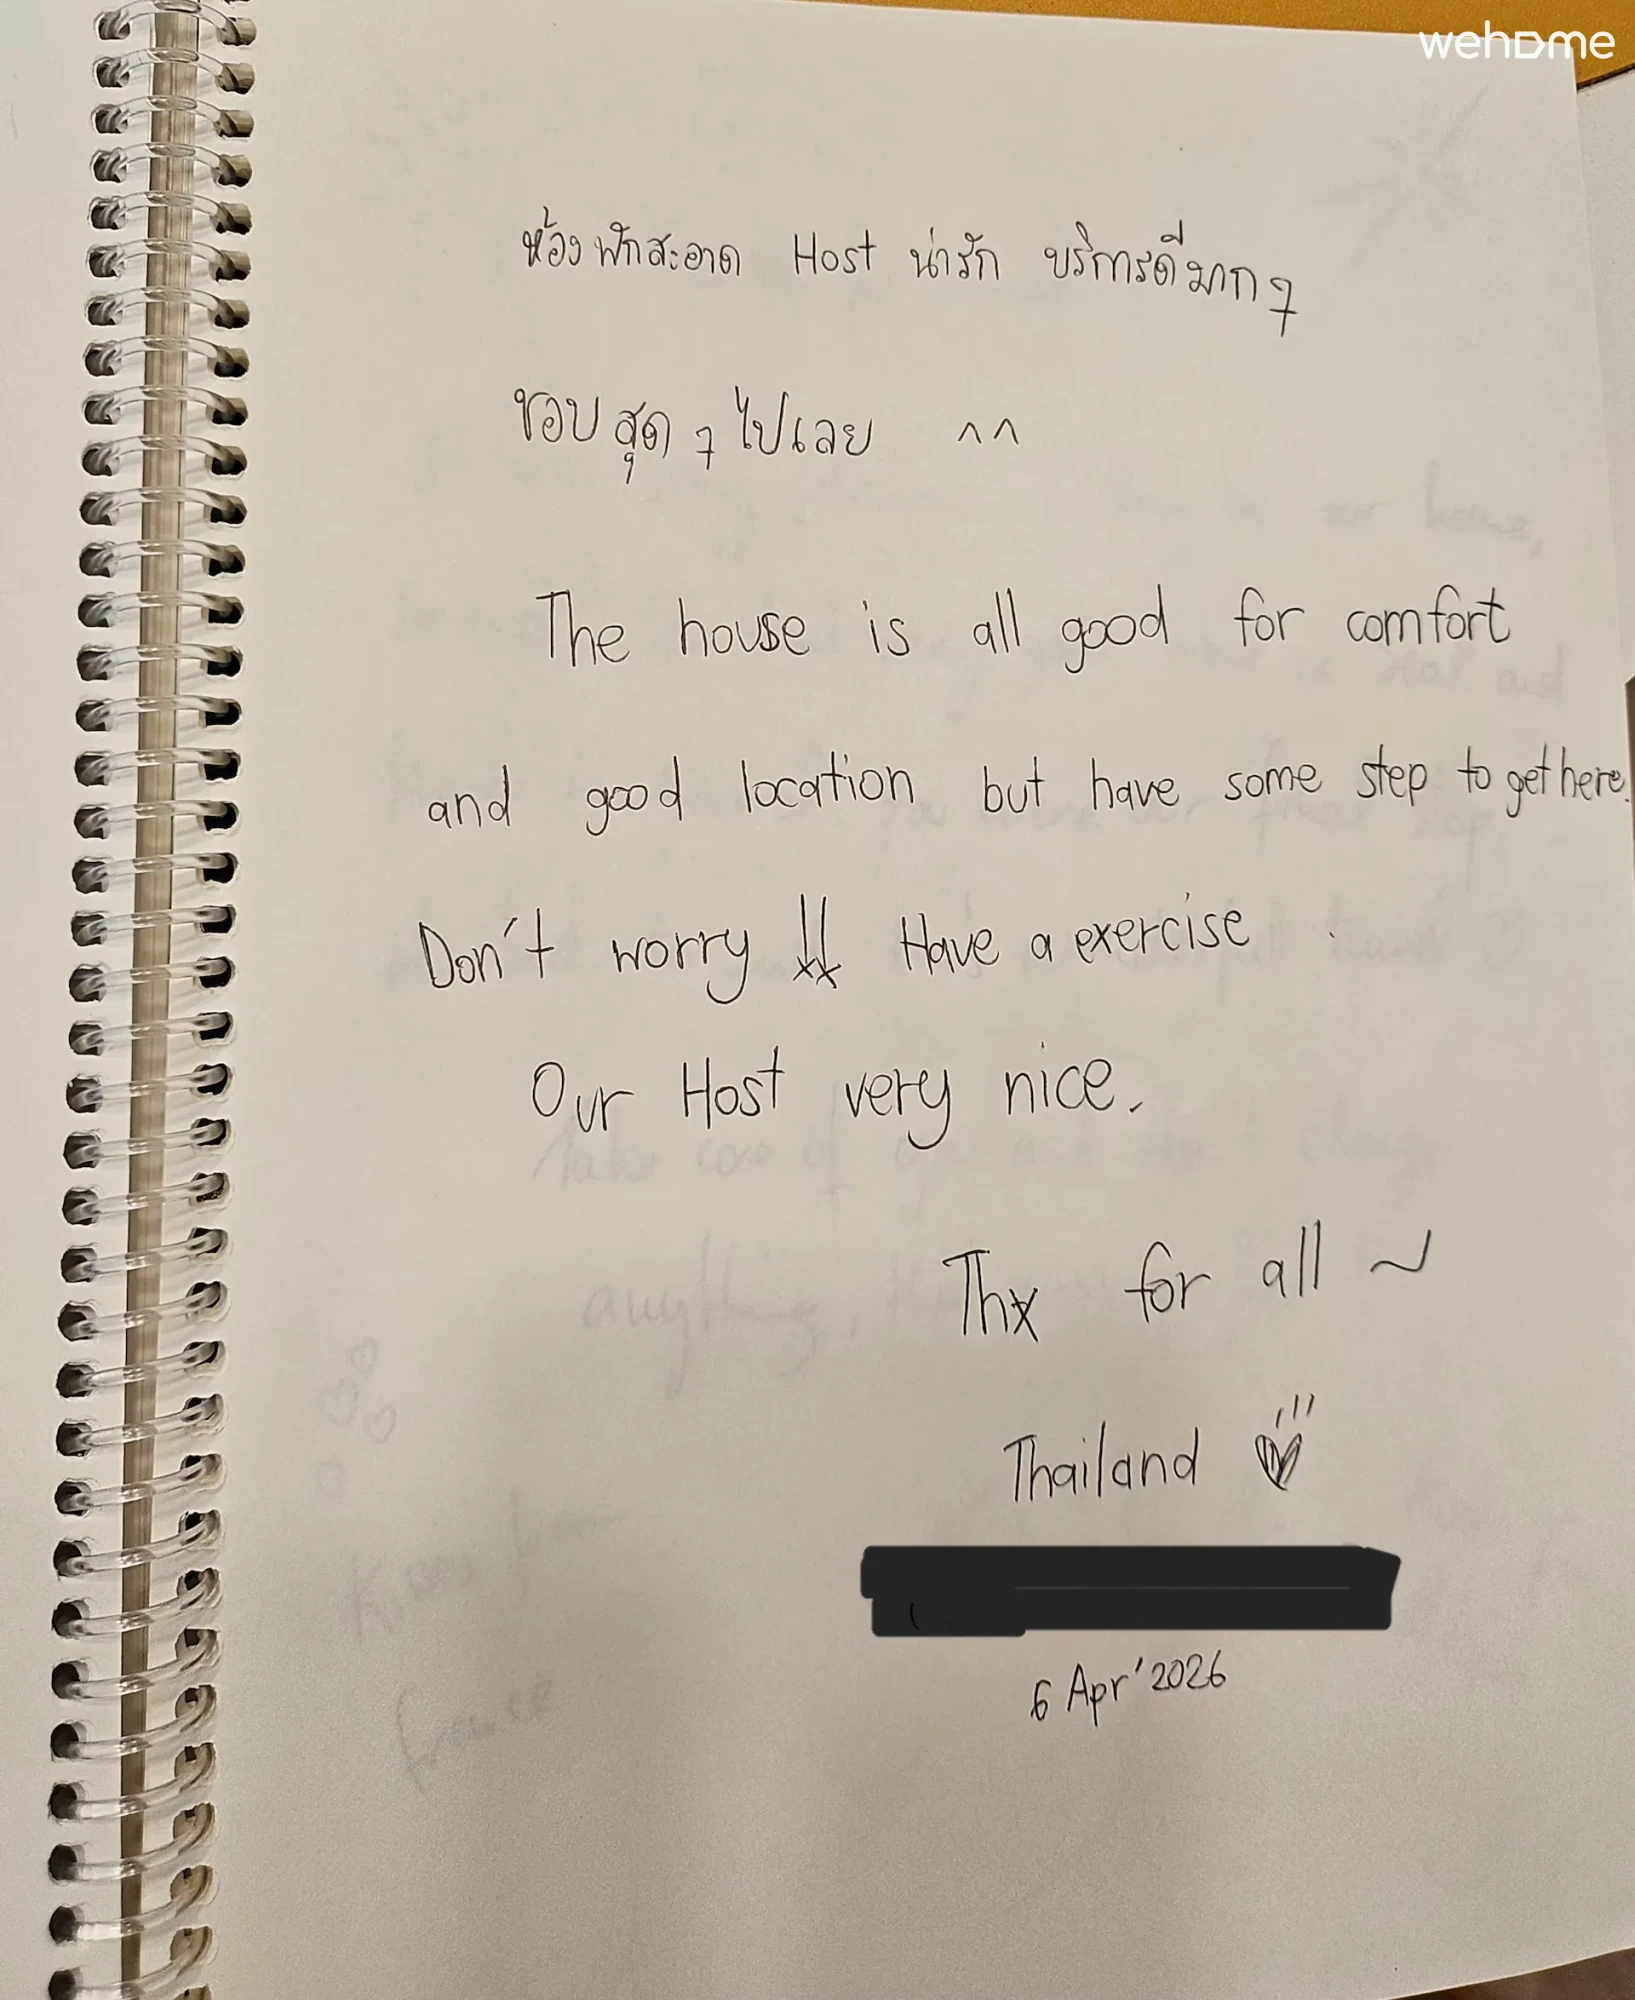 wehome
ห้องพักสะอาด Host น่ารัก บริการดีมากๆ
ชอบสุดๆไปเลย ^^
The house is all good for comfort
and good location but have some step to get here.
Don't worry !! Have a exercise
Our Host very nice.
Thx for all ~
Thailand
6 Apr'2026